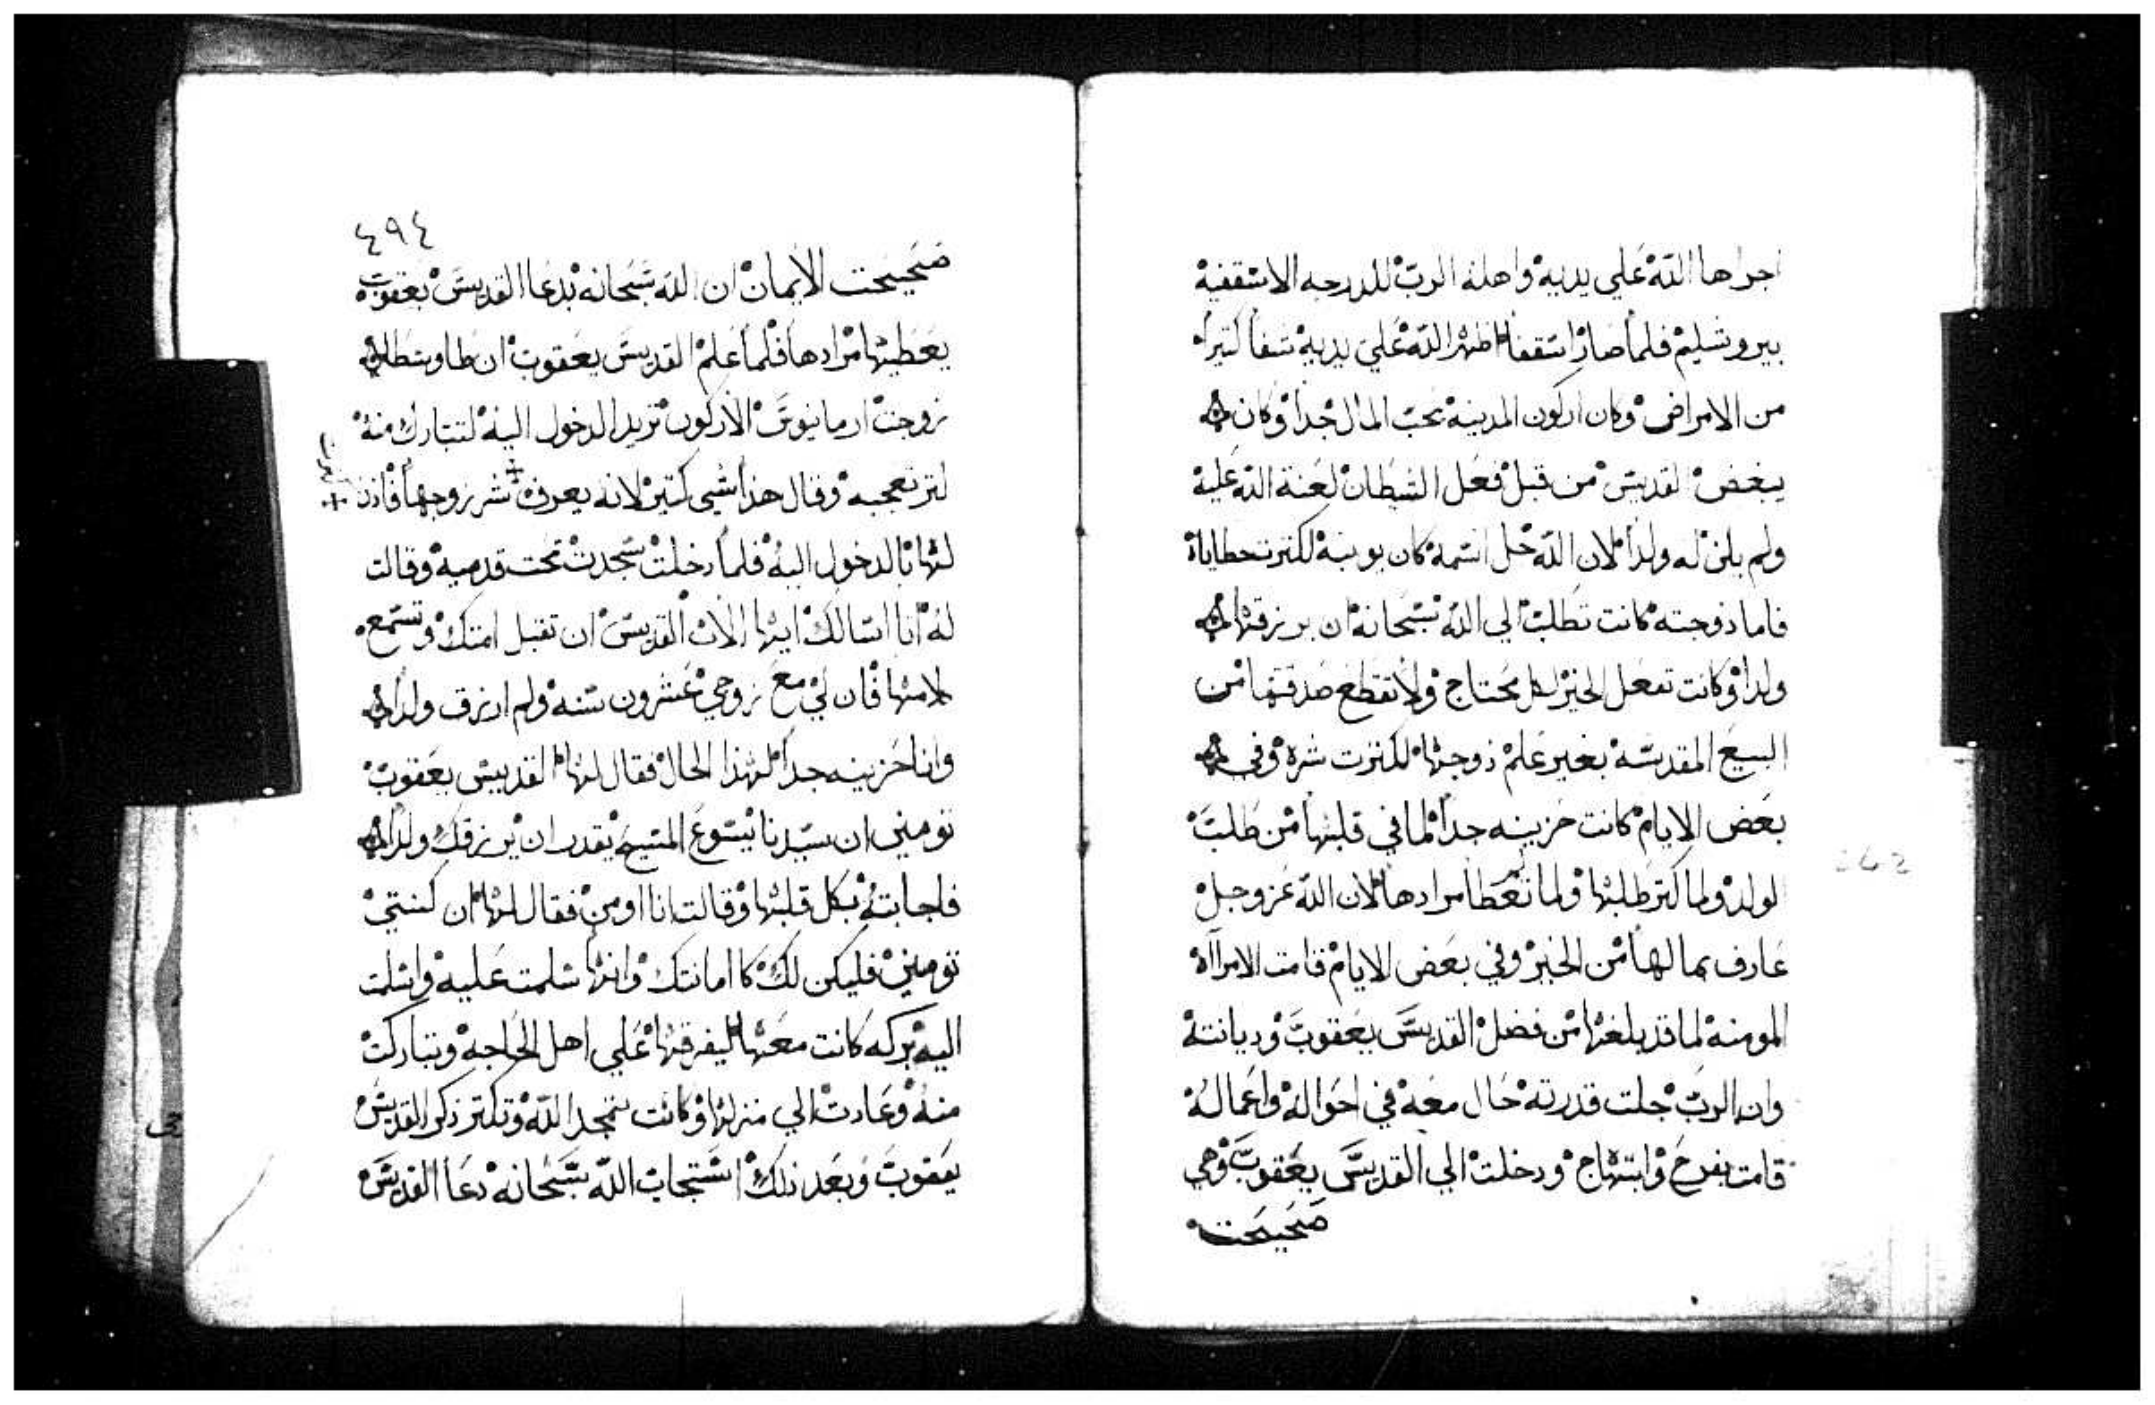 اجراها الله علي يديه واهله الرب للدرجه الاسقفيه
بيروشليم فلما صار اسقفا اظهر الله علي يديه شفا كتيرا
من الامراض وكان اركون المدينه يحب المال جدا وكان
يبغض القديس من قبل فعل الشيطان لعنة الله عليه
ولم يكن له ولدا لان الله جل اسمه كان لكترت خطاياه
فاما ذوجته كانت تطلب الي الله سبحانه ان يرزقها
ولدا وكانت تفعل الخير لكل محتاج ولا تقطع صدقتها من
البيع المقدسه بغير علم ذوجها لكترت شره وفي
بعض الايام كانت حزينه جدا لما في قلبها من طلب
لولد ولما كتر طلبها ولما لم تعطا مرادها لان الله عز وجل
عارف بما لها من الخير وفي بعض الايام قامت الامرااه
المومنه لما قد بلغها من فضل القديس يعقوب وديانته
وان الرب جلت قدرته حال معه في احواله واعماله
قامت بفرح وابتهاج ودخلت الي القديس يعقوب وهي
صحيحت
٤٩٤
صحيحت الايمان ان الله سبحانه بدعا القديس يعقوب
يعطيها مرادها فلما علم القديس يعقوب ان طاوسطا
زوجت ارمانيوس الاركون تريد الدخول اليه لتتبارك منه
كتر تعجبه وقال هذا شي كتير لانه يعرف شر زوجها فاذن
لها بالدخول اليه فلما دخلت سجدت تحت قدميه وقالت
له انا اسالك ايها الاب القديس ان تقبل امتك وتسمع
كلامها فان لي مع زوجي عشرون سنه ولم ارزق ولدا
وانا حزينه جدا لهذا الحال فقال لها القديس يعقوب
تومني ان سيدنا يسوع المسيح يقدر ان يرزقك ولدا
فاجابته بكل قلبها وقالت انا اومن فقال لها ان كنتي
تومني فليكن لك كا امانتك وانها سلمت عليه وسلمت
اليه بركه كانت معها ليفرقها علي اهل الحاجه وتباركت
منه وعادت الي منزلها وكانت تمجد الله وتكتر ذكر القديس
يعقوب وبعد ذلك استجاب الله سبحانه دعا القديس